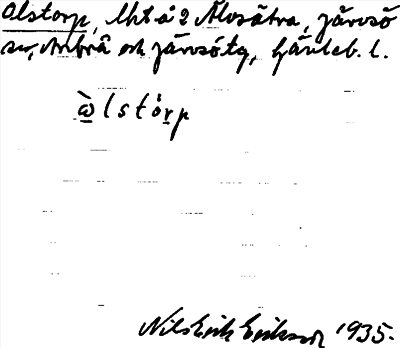 Olstorp, lht å 2 Älvsätra, Järvsö
sn, Arbrå och Järvsö tg, Gävleb. l.
ὼlstórp
Nils Erik Eriksson 1935.